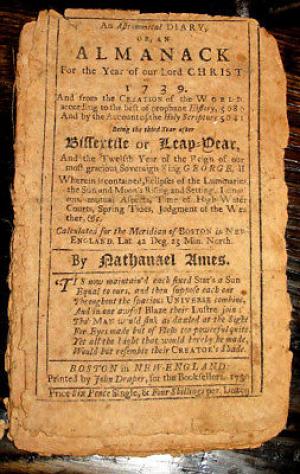 An Astronomical DIARY,
OR, AN
ALMANACK
For the Year of our Lord CHRIST
1739.
And from the CREATION of the WORLD
according to the best of prophane History, 5688
And by the Account of the Holy Scripture 5041
Being the third Year after
Bissextile or Leap-Year,
And the Twelfth Year of the Reign of our
most gracious Sovereign King GEORGE, II
Wherein is contained, Eclipses of the Luminaries
the Sun and Moon's Rising and Setting,
mutual Aspects, Time of High Water
Courts, Spring Tides, Judgment of the Wea
ther, &c.
Calculated for the Meridian of BOSTON in NEW
ENGLAND, Lat. 42 Deg. 25 Min. North.
By Nathanael Ames.
'TIS now maintain'd each fixed Star's a Sun
Equal to ours, and then suppose each our
Throughout the spacious UNIVERSE combine,
And in one awful Blaze their Lustre join:
Tho' MAN would sink as dazled at the Sight
For Eyes made but of Flesh too powerful quite.
Yet all the Light that would thereby be made,
Would but resemble their CREATOR'S Shade.
BOSTON in NEW-ENGLAND
Printed by John Draper, for the Booksellers. 173
Price Six Pence Single, & Four Shillings per Dozen